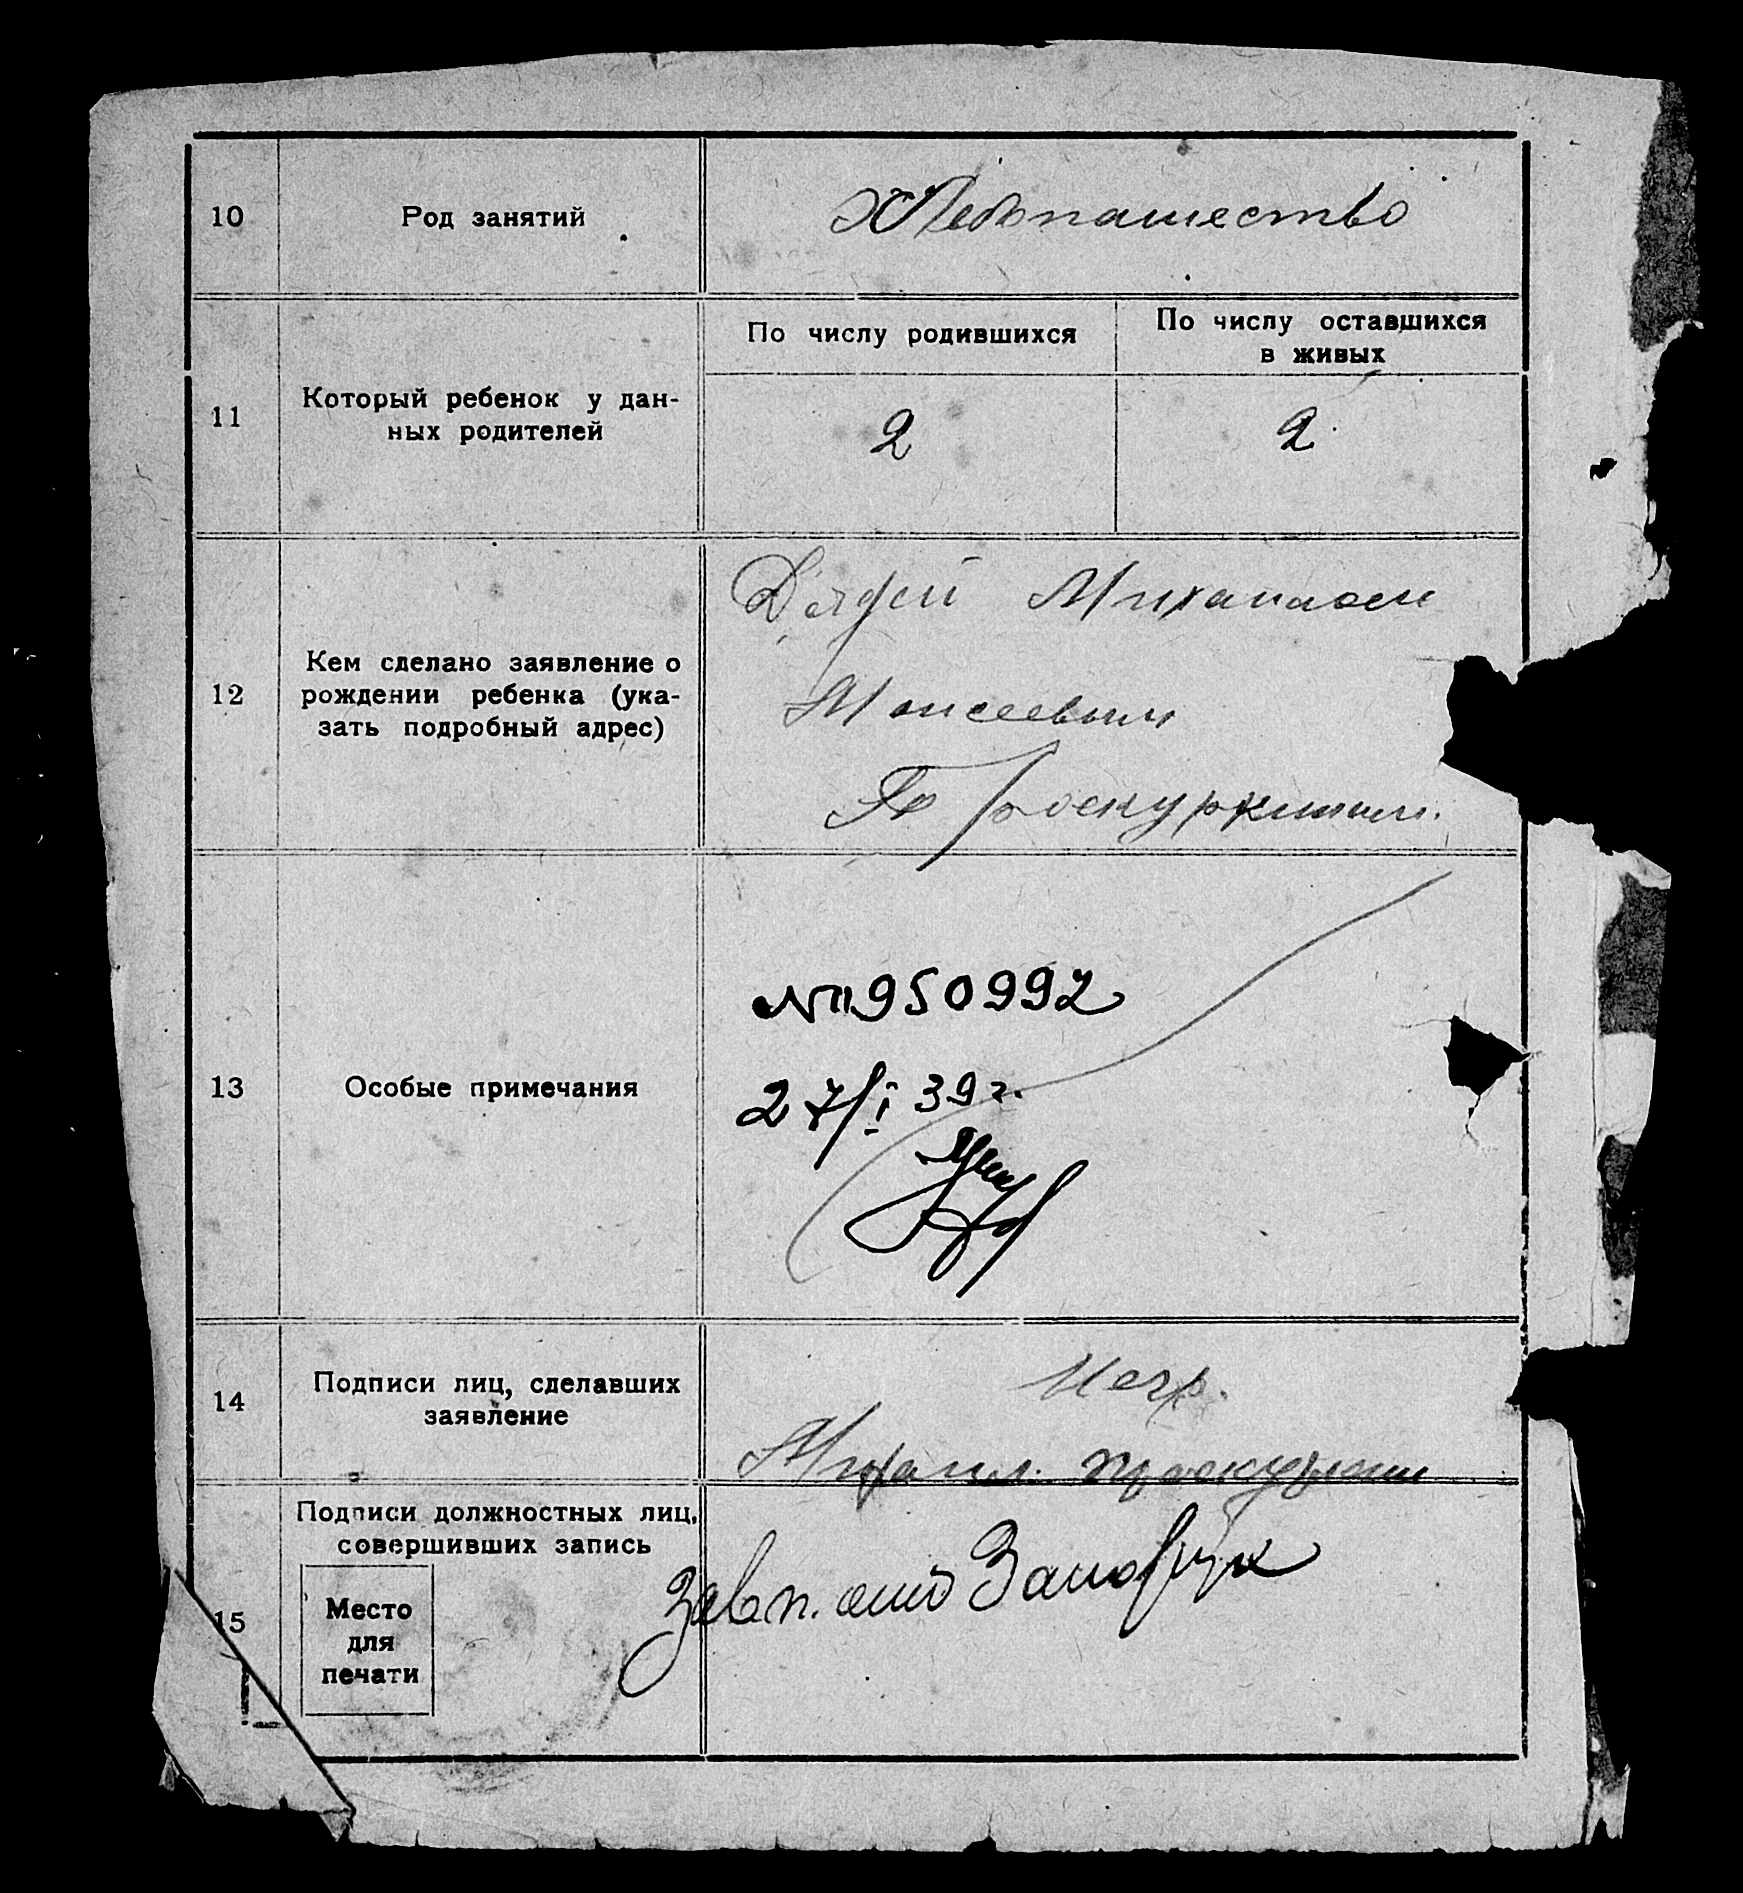 10
Род занятий
Хлебопашество
11
Который ребенок у дан-
ных родителей
По числу родившихся
По числу оставшихся
в живых
2
2
12
Кем сделано заявление о
рождении ребенка (ука-
зать подробный адрес)
Дядей Михаилом
Моисеевым
Проскуркиным.
13
Особые примечания
№ 950992
27/I 39 г.
14
Подписи лиц, сделавших
заявление
Негр.
Михаил
15
Подписи должностных лиц,
совершивших запись
Место
для
печати
Завп.